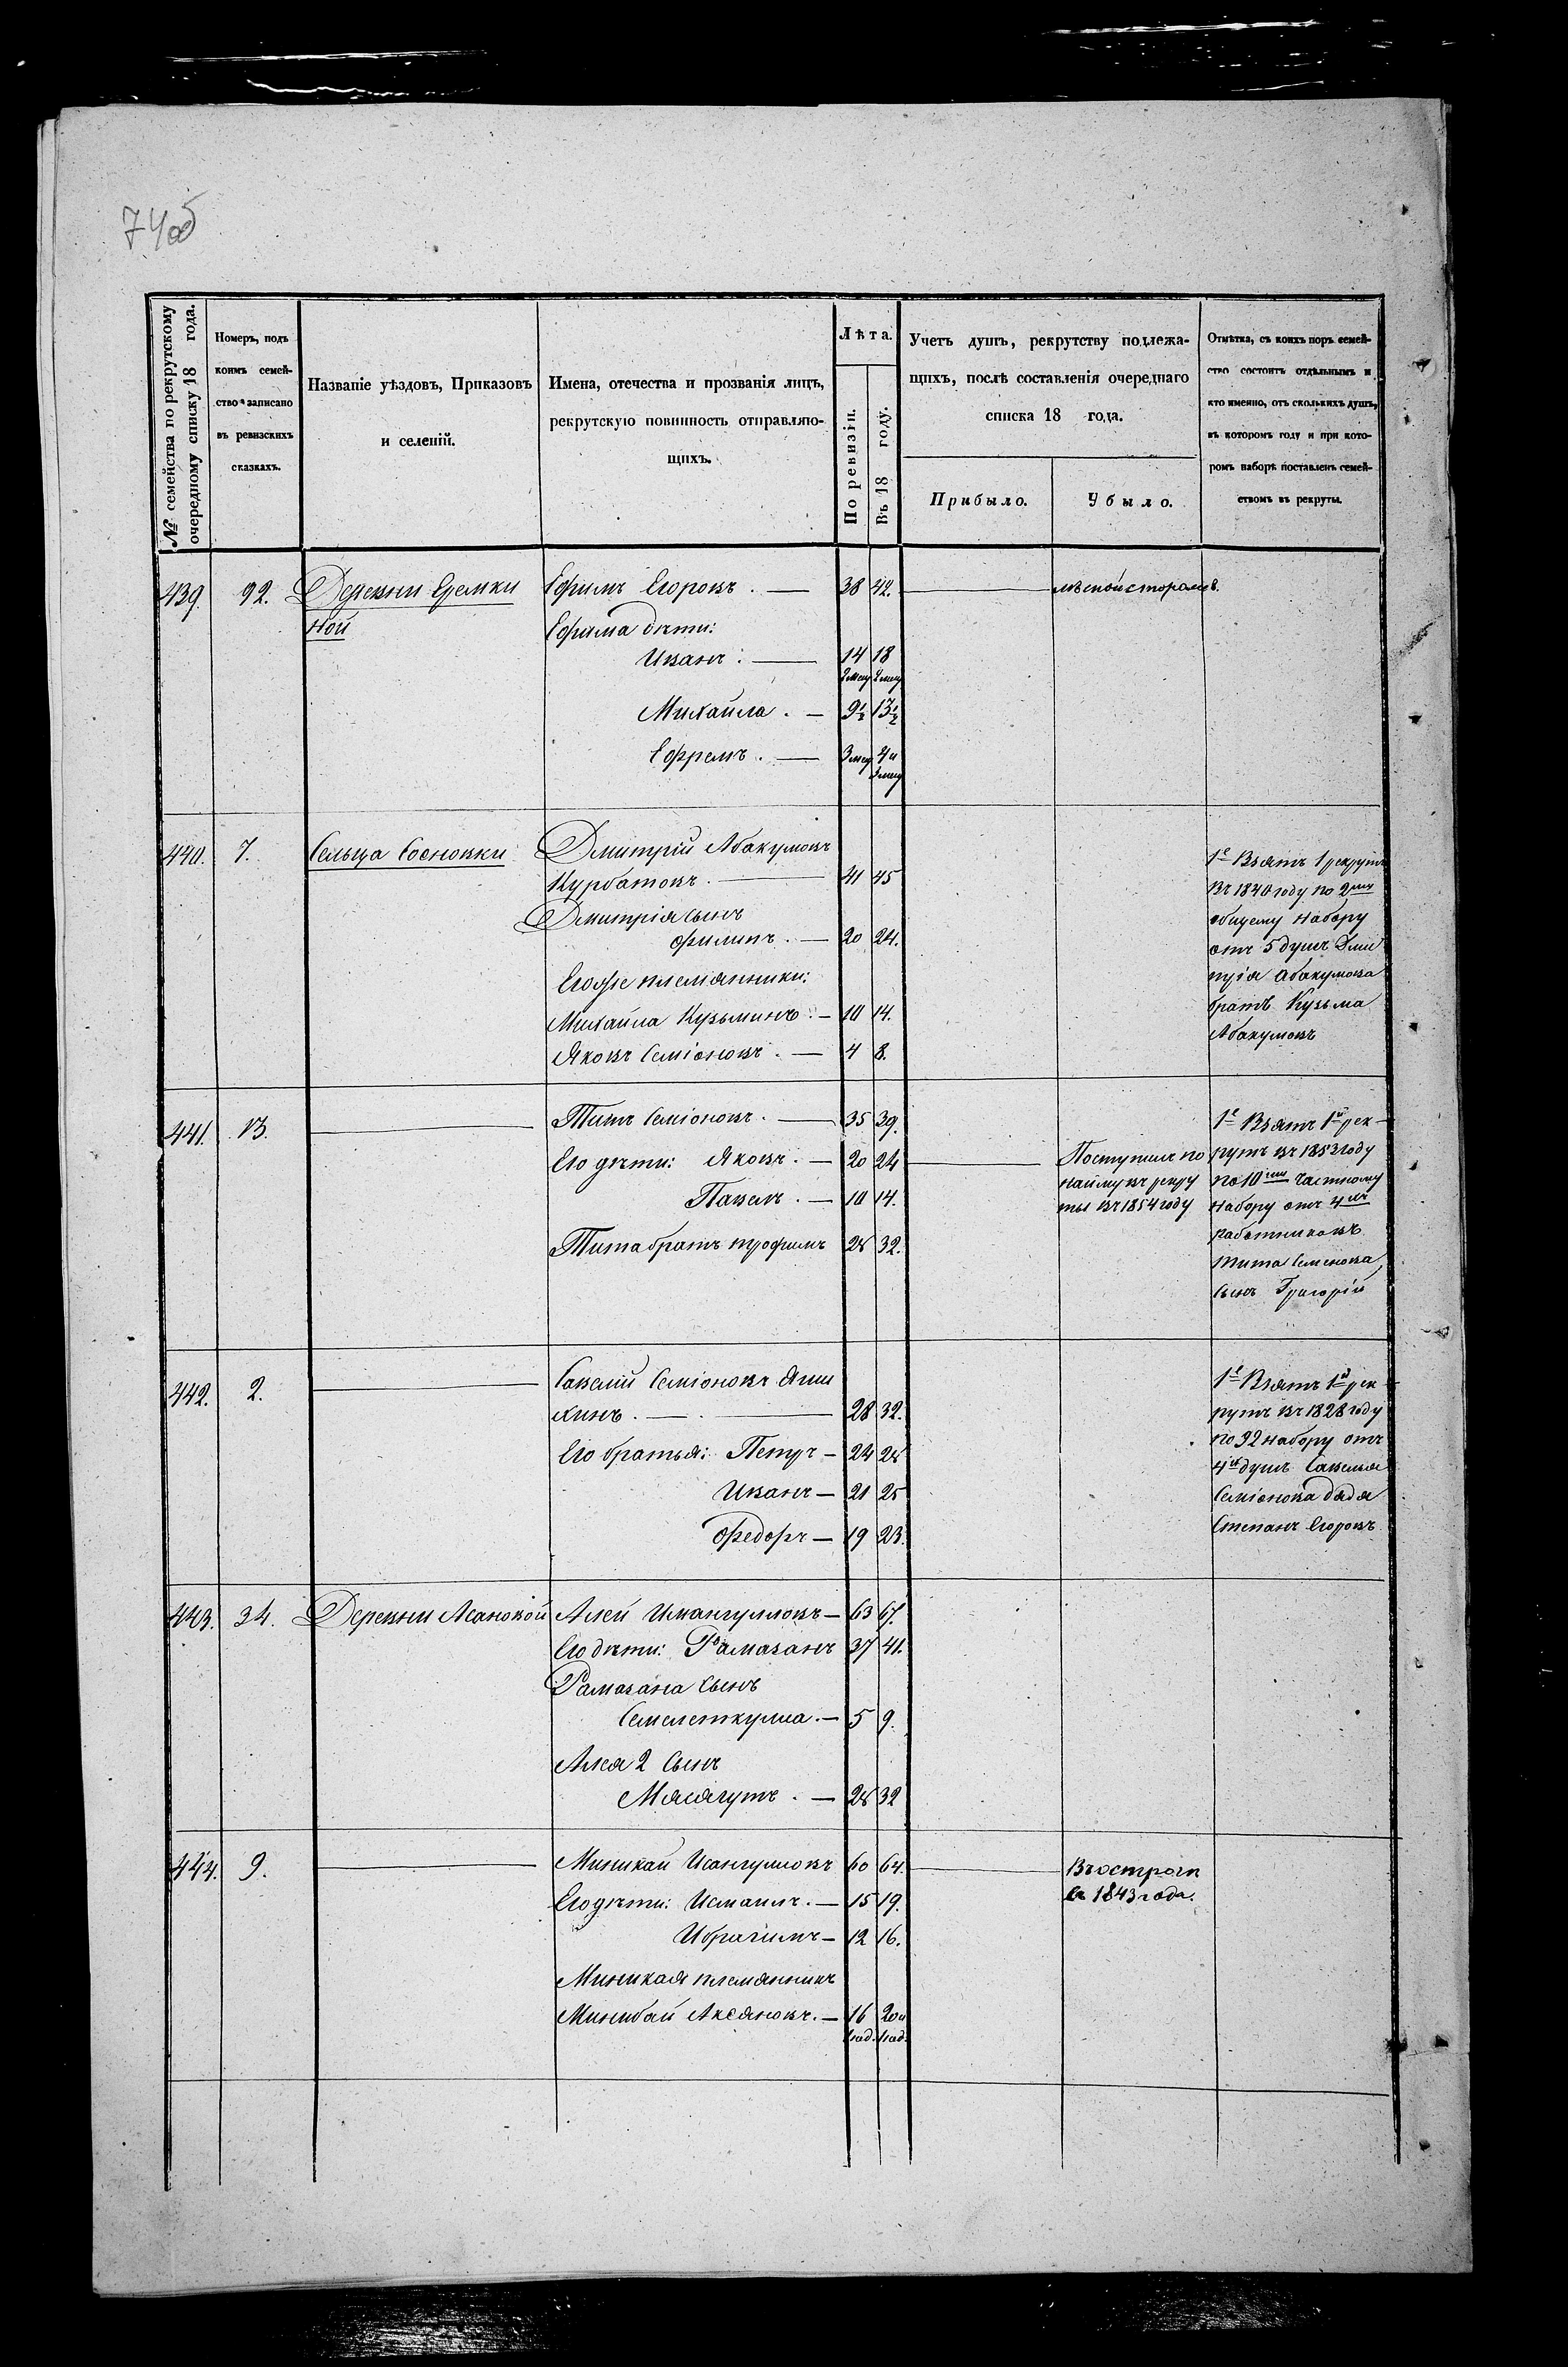 74об
№ семейства по рекрутскому
очередному списку 18 года.
Номеръ, подъ
коимъ семей-
ство записано
въ ревизскихъ
сказкахъ.
Названіе уѣздовъ, Приказовъ
и селеній.
Имена, отечества и прозванія лицъ,
рекрутскую повинность отправляю-
щихъ.
Лѣта.
По ревизіи.
Въ 18 году.
Учетъ душъ, рекрутству подлежа-
щихъ, послѣ составленія очереднаго
списка 18 года.
Прибыло.
Убыло.
Отмѣтка, съ коихъ поръ семей-
ство состоитъ отдѣльнымъ и
кто именно, отъ сколькихъ душъ,
въ которомъ году и при кото-
ромъ наборѣ поставленъ семей-
ствомъ въ рекруты.
439. 92. Деревни Еремки Ефимъ Егоровъ. 38 42.
ной Ефима дѣти:
Иванъ. 14 18
2 мец 2 мец
Михайла. 9½ 13½
Ефремъ. 3 мец 4 и
3 мец
440. 7. Сельца Сосновки Дмитрій Абакумовъ
Курбатовъ. 41 45
Дмитрія сынъ
Филипъ. 20 24.
Егоже племянники:
Михайла Кузьминъ. 10 14.
Яковъ Семіоновъ. 4 8.
1е Взятъ 1 рекрутъ
въ 1840 году по 2му
общему набору
отъ 5 душъ Дми
трія Абакумова
братъ Кузьма
Абакумовъ
441. 13. Титъ Семіоновъ. 35 39.
Его дѣти: Яковъ. 20 24
Павелъ. 10 14.
Тита братъ Трофимъ 28 32.
Поступилъ по
найму въ рекру
ты въ 1854 году
1е Взятъ 1й рек-
рутъ въ 1853 году
по 10му частному
набору отъ 4хъ
работниковъ
Тита Семенова
сынъ Григорій
442. 2. Савелій Семіоновъ Яши
хинъ. 28 32.
Его братья: Петръ 24 28
Иванъ 21 25
Федоръ 19 23.
1е Взятъ 1й рек-
рутъ въ 1828 году
по 92 набору отъ
4хъ душъ Савелья
Семіонова дядя
Степанъ Егоровъ
443. 34. Деревни Асановой Алей Имангуловъ 63 67.
Его дѣти: Рамазанъ 37 41.
Рамазана сынъ
5 9.
Алея 2 сынъ
Мясягутъ. 28 32
444. 9. Миникай Исангуловъ 60 64.
Его дѣти: Исмаилъ. 15 19.
Ибрагимъ 12 16.
Миникая племянникъ
Минибай Аксяновъ. 16 20 и
Въ острогѣ
съ 1843 года.